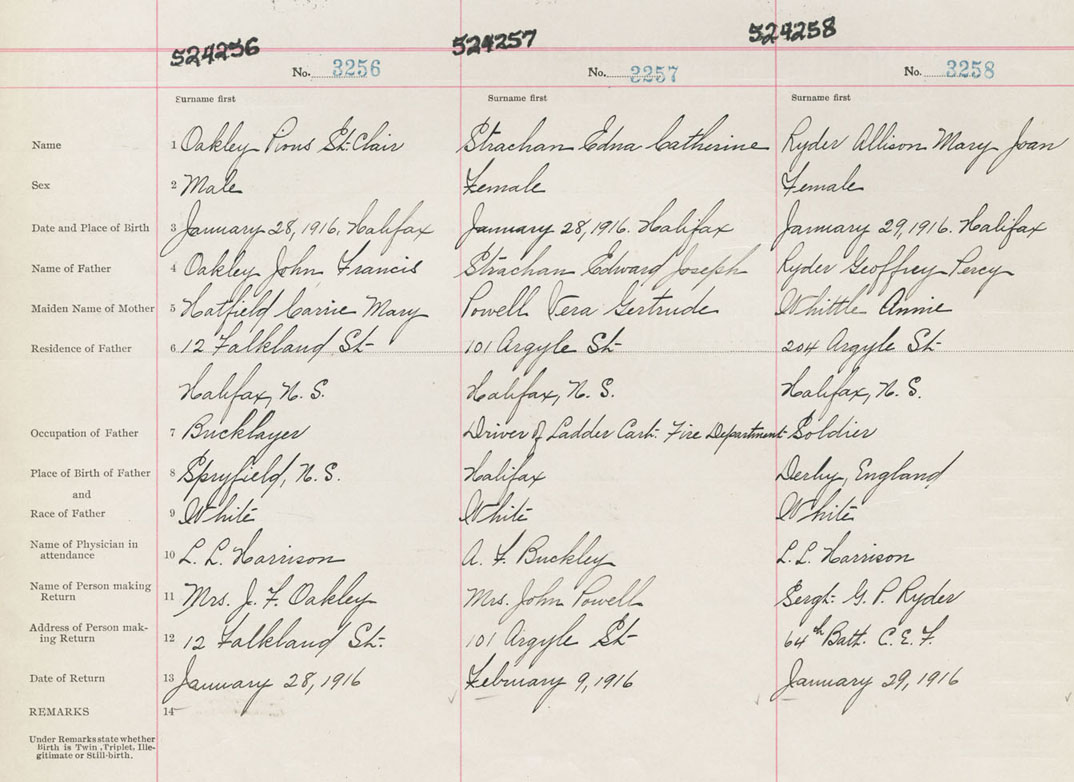 524256 524257 524258
No. 3256 No. 3257 No. 3258
Surname first Surname first Surname first
Name 1 Oakley Pious St. Clair Strachan Edna Catherine Ryder Allison Mary Joan
Sex 2 Male Female Female
Date and Place of Birth 3 January 28, 1916. Halifax January 28, 1916. Halifax January 29, 1916. Halifax
Name of Father 4 Oakley John Francis Strachan Edward Joseph Ryder Geoffrey Percy
Maiden Name of Mother 5 Hatfield Carrie Mary Powell Vera Gertrude Whittle Annie
Residence of Father 6 12 Falkland St. 101 Argyle St. 204 Argyle St.
Halifax, N. S. Halifax, N. S. Halifax, N. S.
Occupation of Father 7 Bricklayer Driver of Ladder Cart. Fire Department Soldier
Place of Birth of Father 8 Spryfield, N. S. Halifax Derby, England
and
Race of Father 9 White White White
Name of Physician in
attendance 10 L. L. Harrison A. F. Buckley L. L. Harrison
Name of Person making
Return 11 Mrs. J. F. Oakley Mrs. John Powell Sergt. G. P. Ryder
Address of Person mak-
ing Return 12 12 Falkland St. 101 Argyle St. 64th Batt. C. E. F.
Date of Return 13 January 28, 1916 February 9, 1916 January 29, 1916
REMARKS 14
Under Remarks state whether
Birth is Twin, Triplet, Ille-
gitimate or Still-birth.